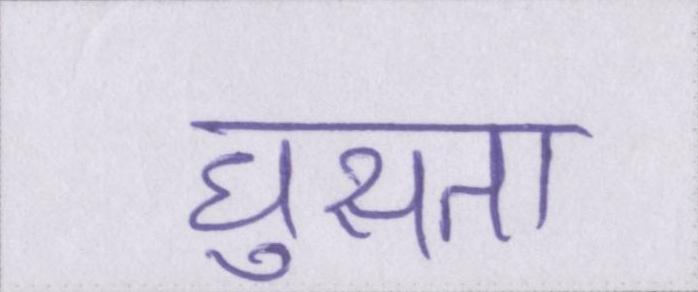 घुसता